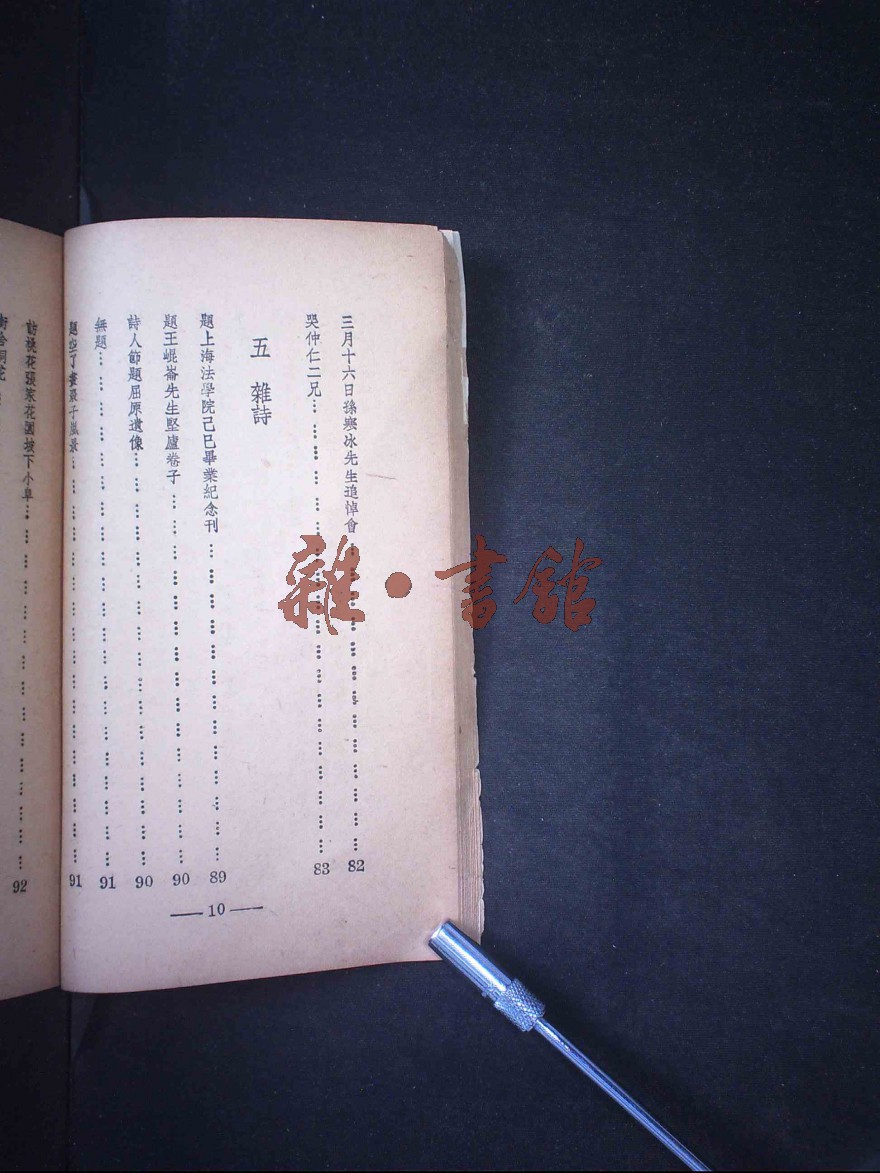 三月十六日孫寒冰先生追悼會………………………………82
哭仲仁二兄………………………………83
五 雜詩
題上海法學院己巳畢業紀念刊………………………………89
題王崐崙先生堅廬卷子………………………………90
詩人節題屈原遺像………………………………90
無題………………………………91
題空了畫最子嵐景………………………………91
— 10 —
訪桃花張家花園坡下小阜………………………………92
雜·書館